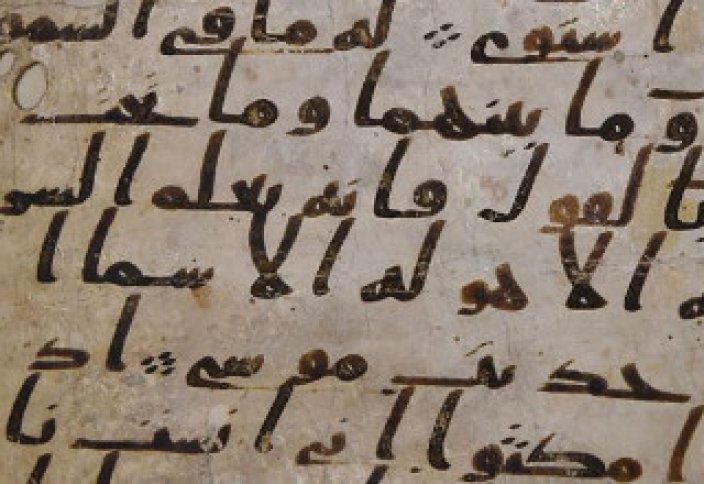 استوى ؞ له ما في السمو
و ما بينهما وما تحت
بالقول فانه يعلم السر
ه الا هو له الاسما ا
حديث موسى ؞ اذ
امكثوا اني انست نا